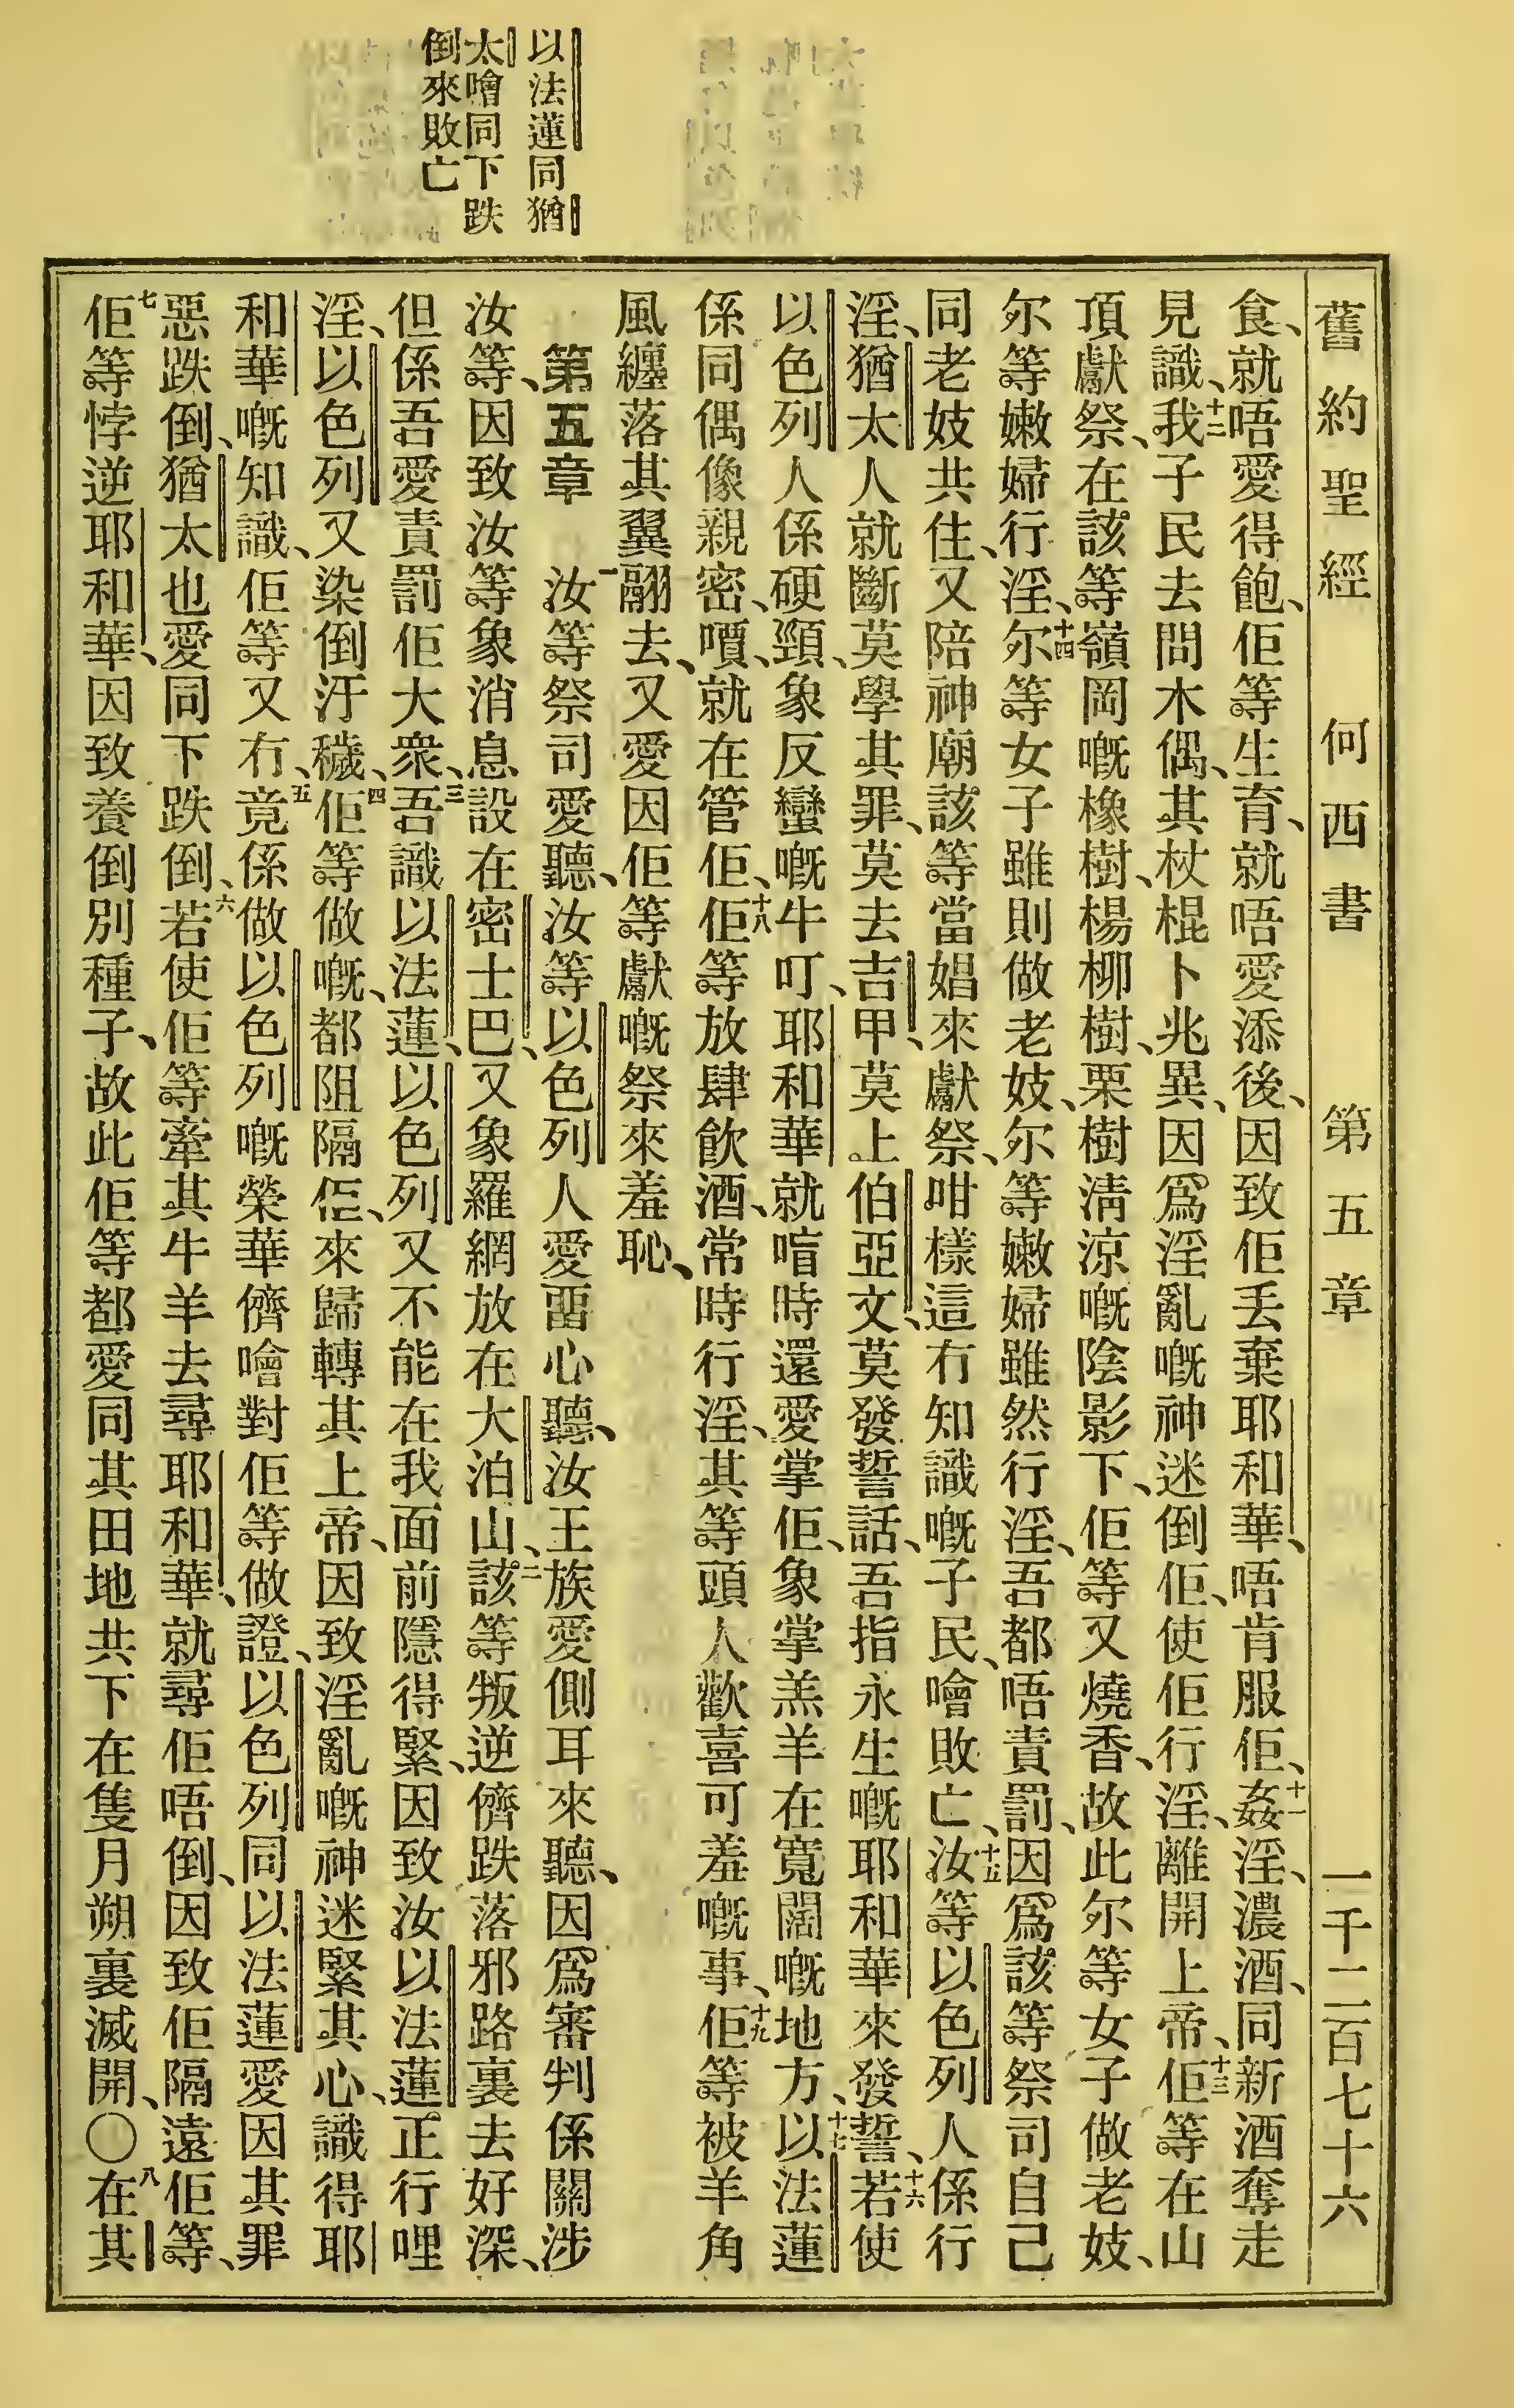 以法蓮同猶
太噲同下跌
倒來敗亡
舊約聖經 何西書 第五章 一千二百七十六
食、就唔愛得飽、佢等生育、就唔愛添後、因致佢丢棄耶和華、唔肯服佢、十一姦淫、濃酒、同新酒奪走
見識、十二我子民去問木偶、其杖棍卜兆異、因爲淫亂嘅神迷倒佢、使佢行淫、離開上帝、十三佢等在山
頂獻祭、在該等嶺岡嘅橡樹、楊柳樹、栗樹淸涼嘅陰影下、佢等又燒香、故此尔等女子做老妓、
尔等嫩婦行淫、十四尔等女子雖則做老妓、尔等嫩婦雖然行淫、吾都唔責罰、因爲該等祭司自己
同老妓共住、又陪神廟該等當娼來獻祭、咁樣這冇知識嘅子民、噲敗亡、十五汝等以色列人係行
淫、猶太人就斷莫學其罪、莫去吉甲、莫上伯亞文、莫發誓話、吾指永生嘅耶和華來發誓、十六若使
以色列人係硬頸、象反蠻嘅牛叮、耶和華就喑時還愛掌佢、象掌羔羊在寬闊嘅地方、十七以法蓮
係同偶像親密、嘪、就在管佢、十八佢等放肆飮酒、常時行淫、其等頭人歡喜可羞嘅事、十九佢等被羊角
風纏落其翼翮去、又愛因佢等獻嘅祭來羞恥、
第五章 一汝等祭司愛聽、汝等以色列人愛畱心聽、汝王族愛側耳來聽、因爲審判係關涉
汝等、因致汝等象消息設在密士巴、又象羅網放在大泊山、二該等叛逆儕跌落邪路裏去好深、
但係吾愛責罰佢大衆、三吾識以法蓮、以色列又不能在我面前隱得緊、因致汝以法蓮正行哩
淫、以色列又染倒汙穢、四佢等做嘅、都阻隔佢、來歸轉其上帝、因致淫亂嘅神迷緊其心、識得耶
和華嘅知識、佢等又冇、五竟係做以色列嘅榮華儕噲對佢等做證、以色列同以法蓮愛因其罪
惡跌倒、猶太也愛同下跌倒、六若使佢等牽其牛羊去尋耶和華、就尋佢唔倒、因致佢隔遠佢等、
七佢等悖逆耶和華、因致養倒別種子、故此佢等都愛同其田地共下在隻月朔裏滅開、〇八在其